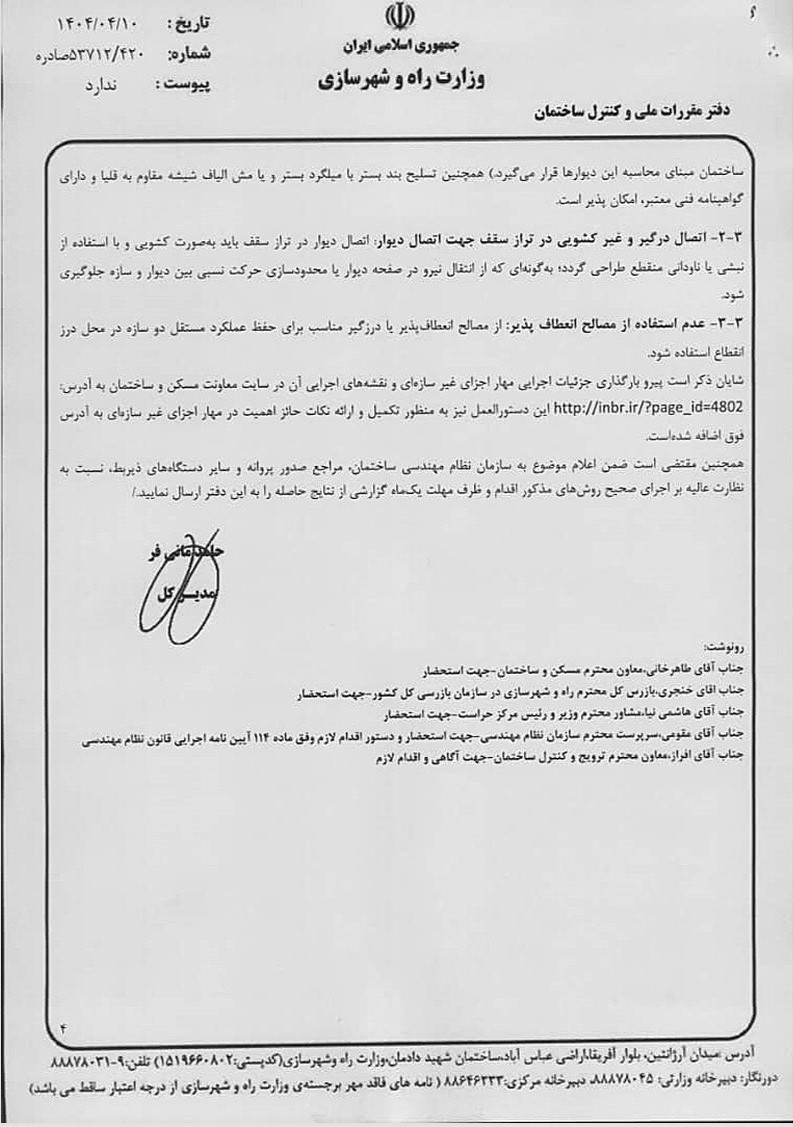 جمهوری اسلامی ایران
وزارت راه و شهرسازی
تاریخ : ۱۴۰۴/۰۴/۱۰
شماره: ۵۳۷۱۲/۴۲۰صادره
پیوست : ندارد
دفتر مقررات ملی و کنترل ساختمان
ساختمان مبنای محاسبه این دیوارها قرار می‌گیرد.) همچنین تسلیح بند بستر با میلگرد بستر و یا مش الیاف شیشه مقاوم به قلیا و دارای
گواهینامه فنی معتبر، امکان پذیر است.
۳-۲- اتصال درگیر و غیر کشویی در تراز سقف جهت اتصال دیوار: اتصال دیوار در تراز سقف باید به‌صورت کشویی و با استفاده از
نبشی یا ناودانی منقطع طراحی گردد؛ به‌گونه‌ای که از انتقال نیرو در صفحه دیوار یا محدودسازی حرکت نسبی بین دیوار و سازه جلوگیری
شود.
۳-۳- عدم استفاده از مصالح انعطاف پذیر: از مصالح انعطاف‌پذیر یا درزگیر مناسب برای حفظ عملکرد مستقل دو سازه در محل درز
انقطاع استفاده شود.
شایان ذکر است پیرو بارگذاری جزئیات اجرایی مهار اجزای غیر سازه‌ای و نقشه‌های اجرایی آن در سایت معاونت مسکن و ساختمان به آدرس:
http://inbr.ir/?page_id=4802 این دستورالعمل نیز به منظور تکمیل و ارائه نکات حائز اهمیت در مهار اجزای غیر سازه‌ای به آدرس
فوق اضافه شده‌است.
همچنین مقتضی است ضمن اعلام موضوع به سازمان نظام مهندسی ساختمان، مراجع صدور پروانه و سایر دستگاه‌های ذیربط، نسبت به
نظارت عالیه بر اجرای صحیح روش‌های مذکور اقدام و ظرف مهلت یک‌ماه گزارشی از نتایج حاصله را به این دفتر ارسال نمایید./
حامد مانی فر
مدیر کل
رونوشت:
جناب آقای طاهرخانی،معاون محترم مسکن و ساختمان-جهت استحضار
جناب اقای خنجری،بازرس کل محترم راه و شهرسازی در سازمان بازرسی کل کشور-جهت استحضار
جناب آقای هاشمی نیا،مشاور محترم وزیر و رئیس مرکز حراست-جهت استحضار
جناب آقای مقومی،سرپرست محترم سازمان نظام مهندسی-جهت استحضار و دستور اقدام لازم وفق ماده ۱۱۴ آیین نامه اجرایی قانون نظام مهندسی
جناب آقای افراز،معاون محترم ترویج و کنترل ساختمان-جهت آگاهی و اقدام لازم
۴
آدرس :میدان آرژانتین، بلوار آفریقا،اراضی عباس آباد،ساختمان شهید دادمان،وزارت راه وشهرسازی(کدپستی:۱۵۱۹۶۶۰۸۰۲) تلفن:۹-۸۸۸۷۸۰۳۱
دورنگار: دبیرخانه وزارتی: ۸۸۸۷۸۰۴۵، دبیرخانه مرکزی:۸۸۶۴۶۳۳۳ ( نامه های فاقد مهر برجسته‌ی وزارت راه و شهرسازی از درجه اعتبار ساقط می باشد)